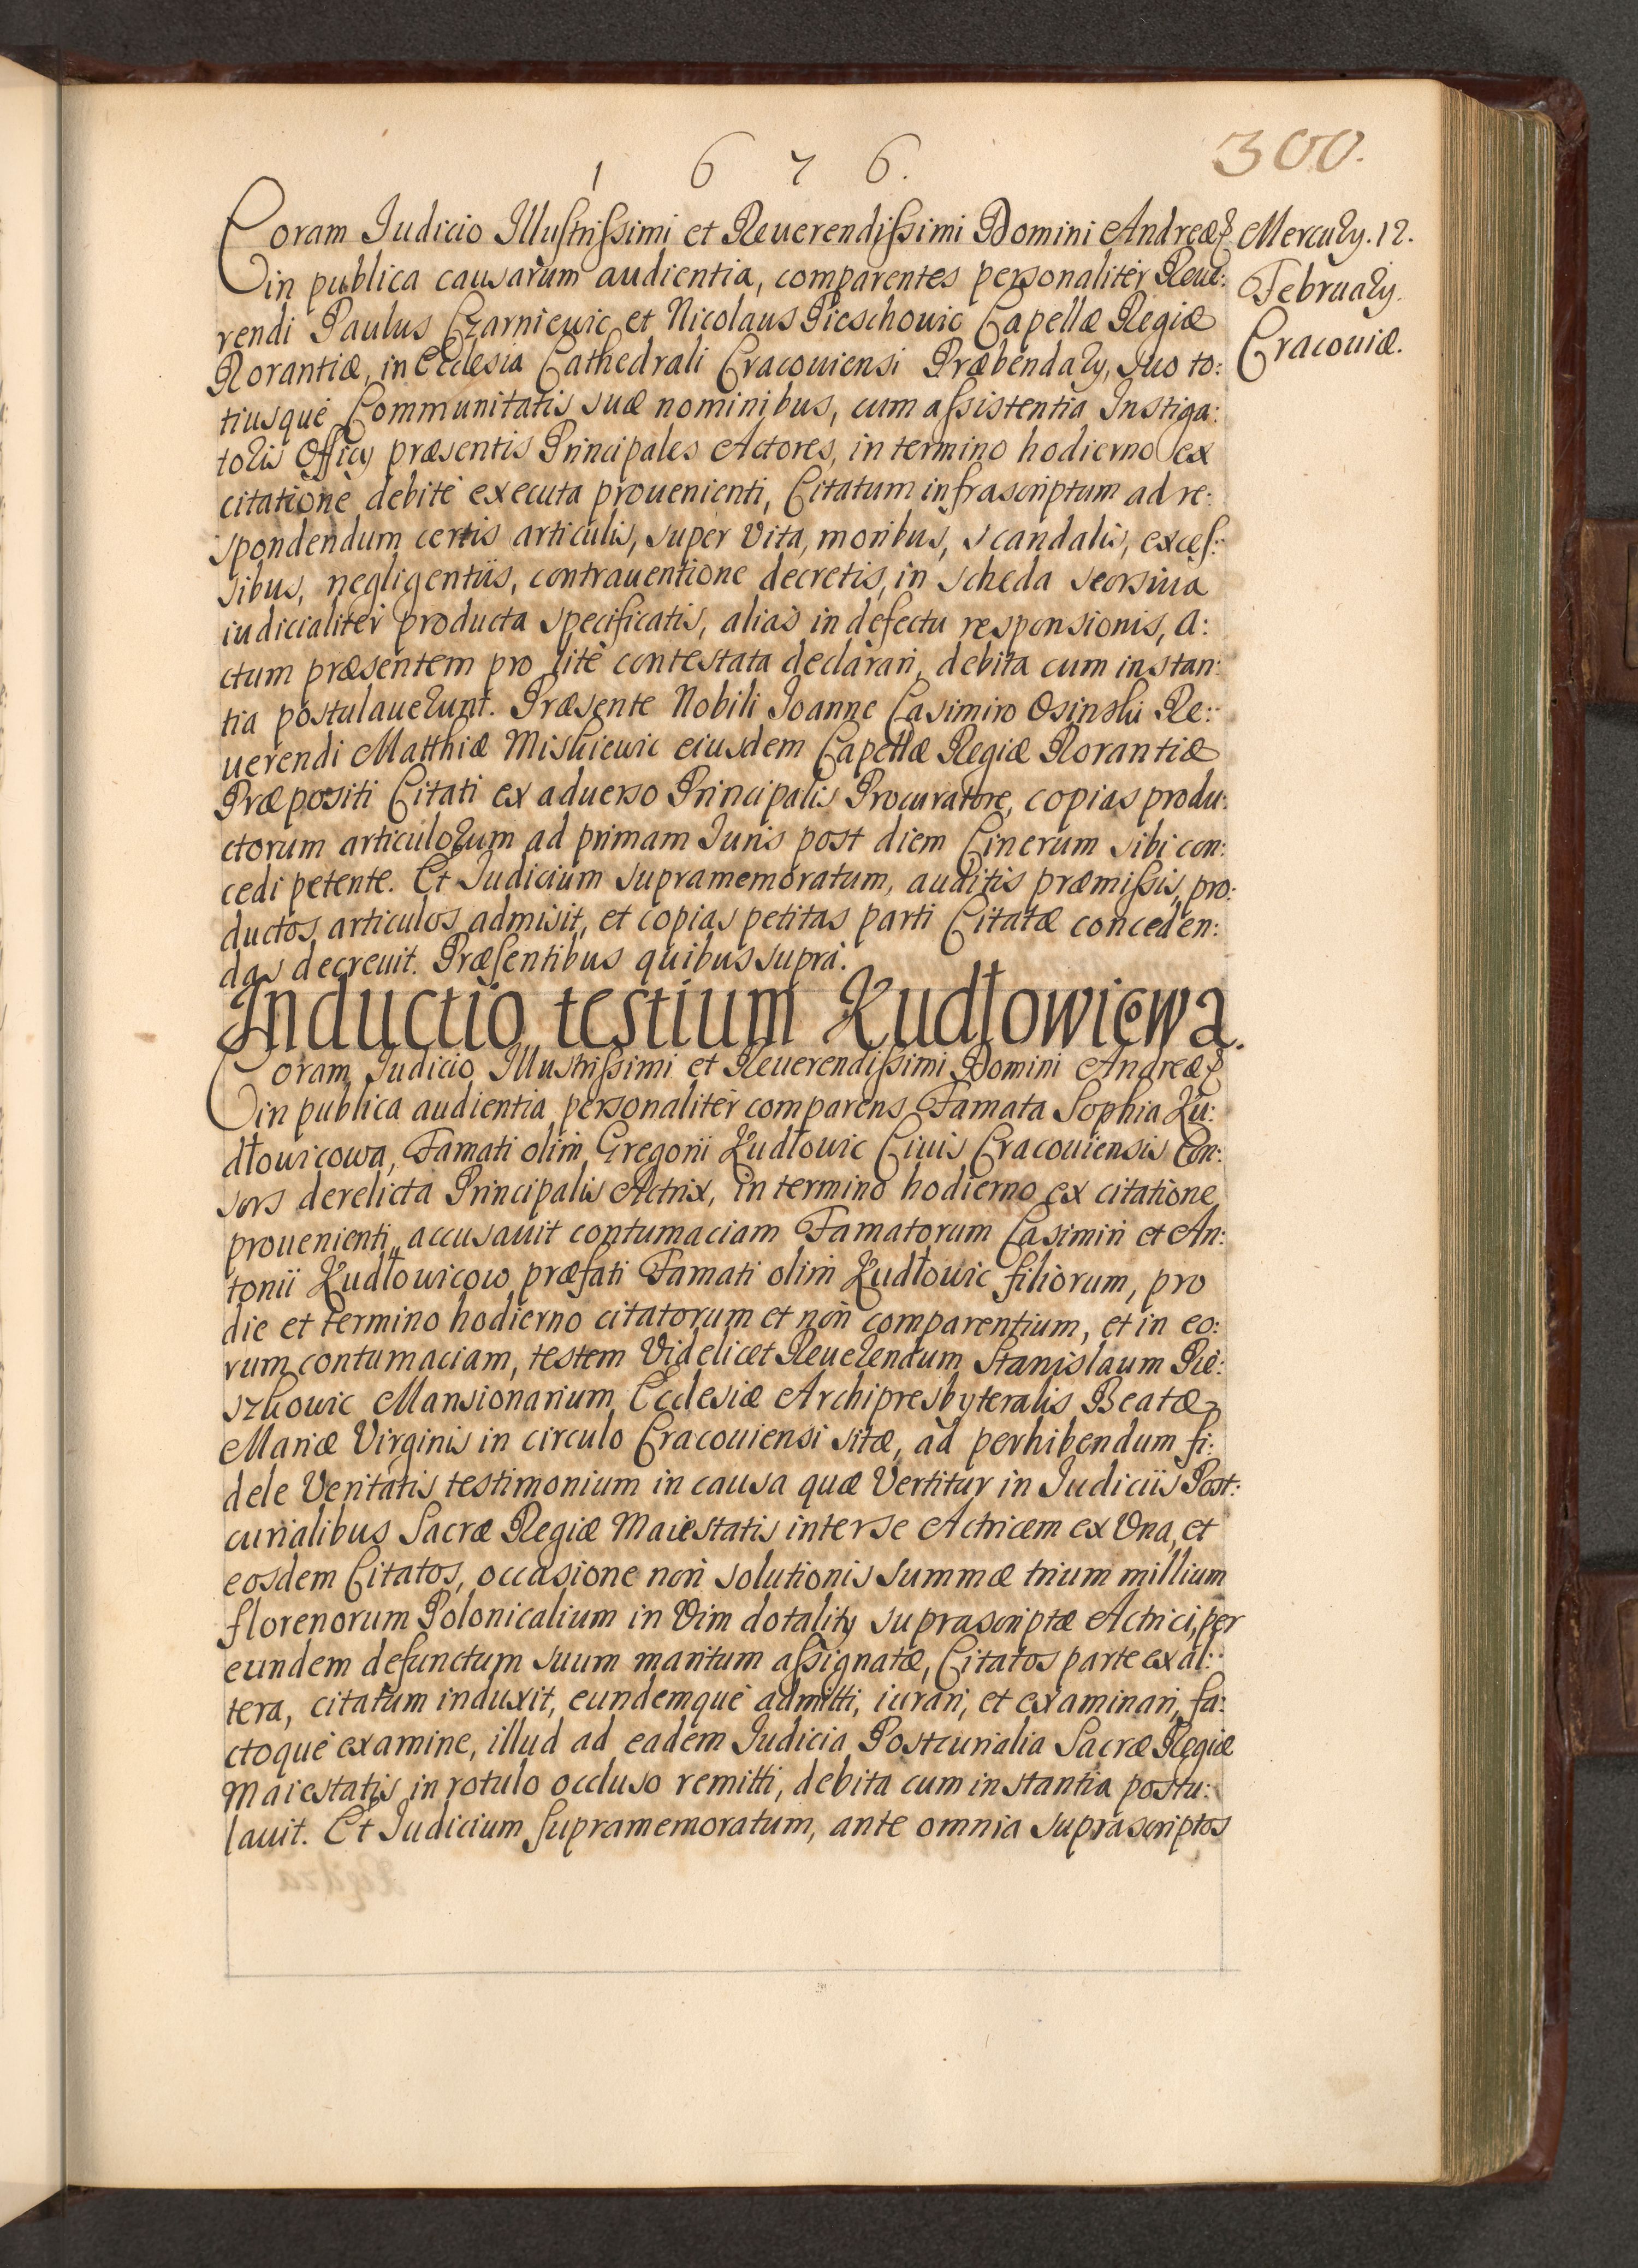 1 6 7 6.
300.
Coram Judicio Illustrissimi et Reuerendissimi Domini Andreæ
in publica causarum audientia, comparentes personaliter Reue:
rendi Paulus Czarnieuic et Nicolaus Pieschouic Capellæ Regiæ
Rorantiæ, in Ecclesia Cathedrali Cracouiensi Præbendary, suo to:
tiusque Communitatis suæ nominibus, cum assistentia Instiga:
toris Officy præsentis Principales Actores, in termino hodierno ex
citatione debite executa prouenienti, Citatum infrascriptum ad re:
spondendum certis articulis, super vita, moribus, scandalis, exces:
sibus, negligentiis, contrauentione decretis, in scheda seorsiua
iudicialiter producta specificatis, alias in defectu responsionis, a:
ctum præsentem pro lite contestata declarari, debita cum instan:
tia postulauerunt. Præsente Nobili Joanne Casimiro Osinski Re:
uerendi Matthiæ Miskiewic eiusdem Capellæ Regiæ Rorantiæ
Præpositi Citati ex aduerso Principalis Procuratore, copias produ:
ctorum articulorum ad primam Iuris post diem Cinerum sibi con:
cedi petente. Et Judicium supramemoratum, auditis præmissis, pro:
ductos articulos admisit, et copias petitas parti Citatæ conceden:
das decreuit. Præsentibus quibus supra.
Mercury. 12.
February.
Cracouiæ.
Inductio testium Kudłowicowa.
Coram Judicio Illustrissimi et Reuerendissimi Domini Andreæ
in publica audientia personaliter comparens Famata Sophia Ku:
dłouicowa, Famati olim Gregorii Kudłowic Ciuis Cracouiensis Con:
sors derelicta Principalis Actrix, in termino hodierno ex citatione
prouenienti, accusauit contumaciam Famatorum Casimiri et An:
tonii Kudłouicow præfati Famati olim Kudłouic filiorum, pro
die et termino hodierno citatorum et non comparentium, et in eo:
rum contumaciam, testem videlicet Reuerendum Stanislaum Pie:
szkowic Mansionarium Ecclesiæ Archipresbyteralis Beatæ
Mariæ Virginis in circulo Cracouiensi sitæ, ad perhibendum fi:
dele veritatis testimonium in causa quæ vertitur in Judiciis Post:
curialibus Sacræ Regiæ Maiestatis inter se Actricem ex vna, et
eosdem Citatos, occasione non solutionis summæ trium millium
florenorum Polonicalium in vim dotality suprascriptæ Actrici, per
eundem defunctum suum maritum assignatæ, Citatos parte ex al:
tera, citatum induxit, eundemque admitti, iurari, et examinari, fa:
ctoque examine, illud ad eadem Judicia Postcurialia Sacræ Regiæ
Maiestatis in rotulo occluso remitti, debita cum instantia postu:
lauit. Et Judicium supramemoratum, ante omnia suprascriptos